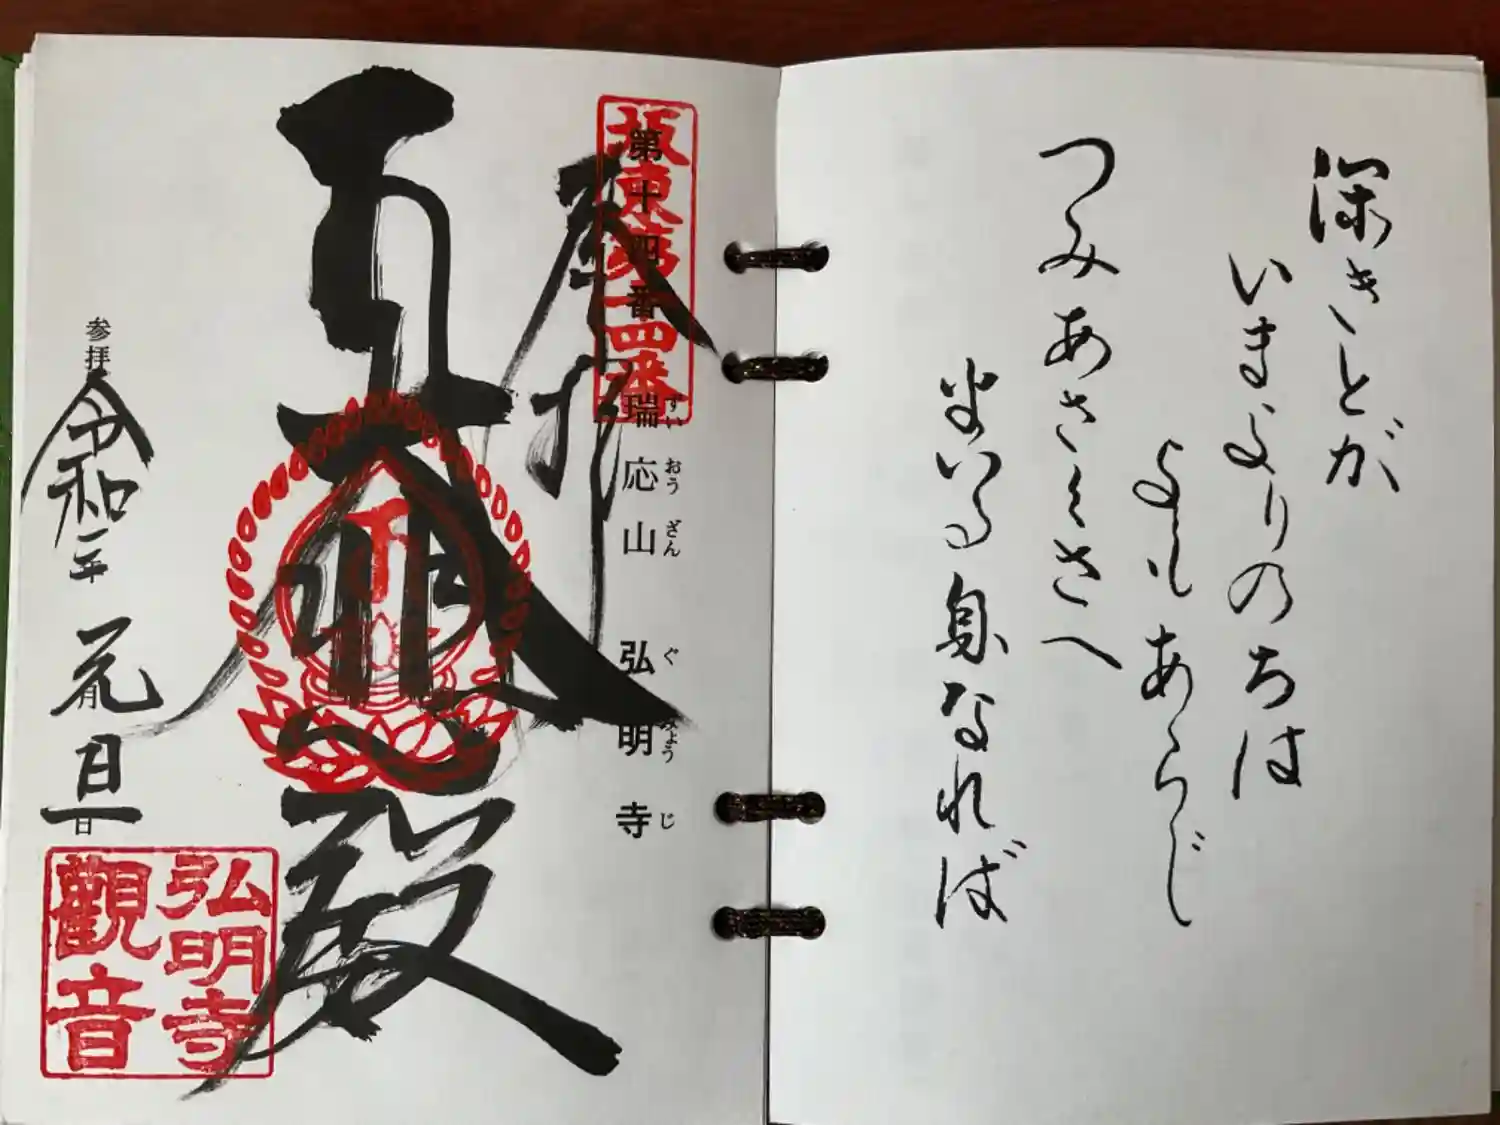 深きとが
いまよりのちは
よもあらじ
つみあさくさへ
まいる身なれば
坂東第十四番
第十四番 瑞応山 弘明寺
ずいおうざん ぐみょうじ
奉拝
大悲殿
参拝 令和二年 元月旦日
弘明寺
觀音